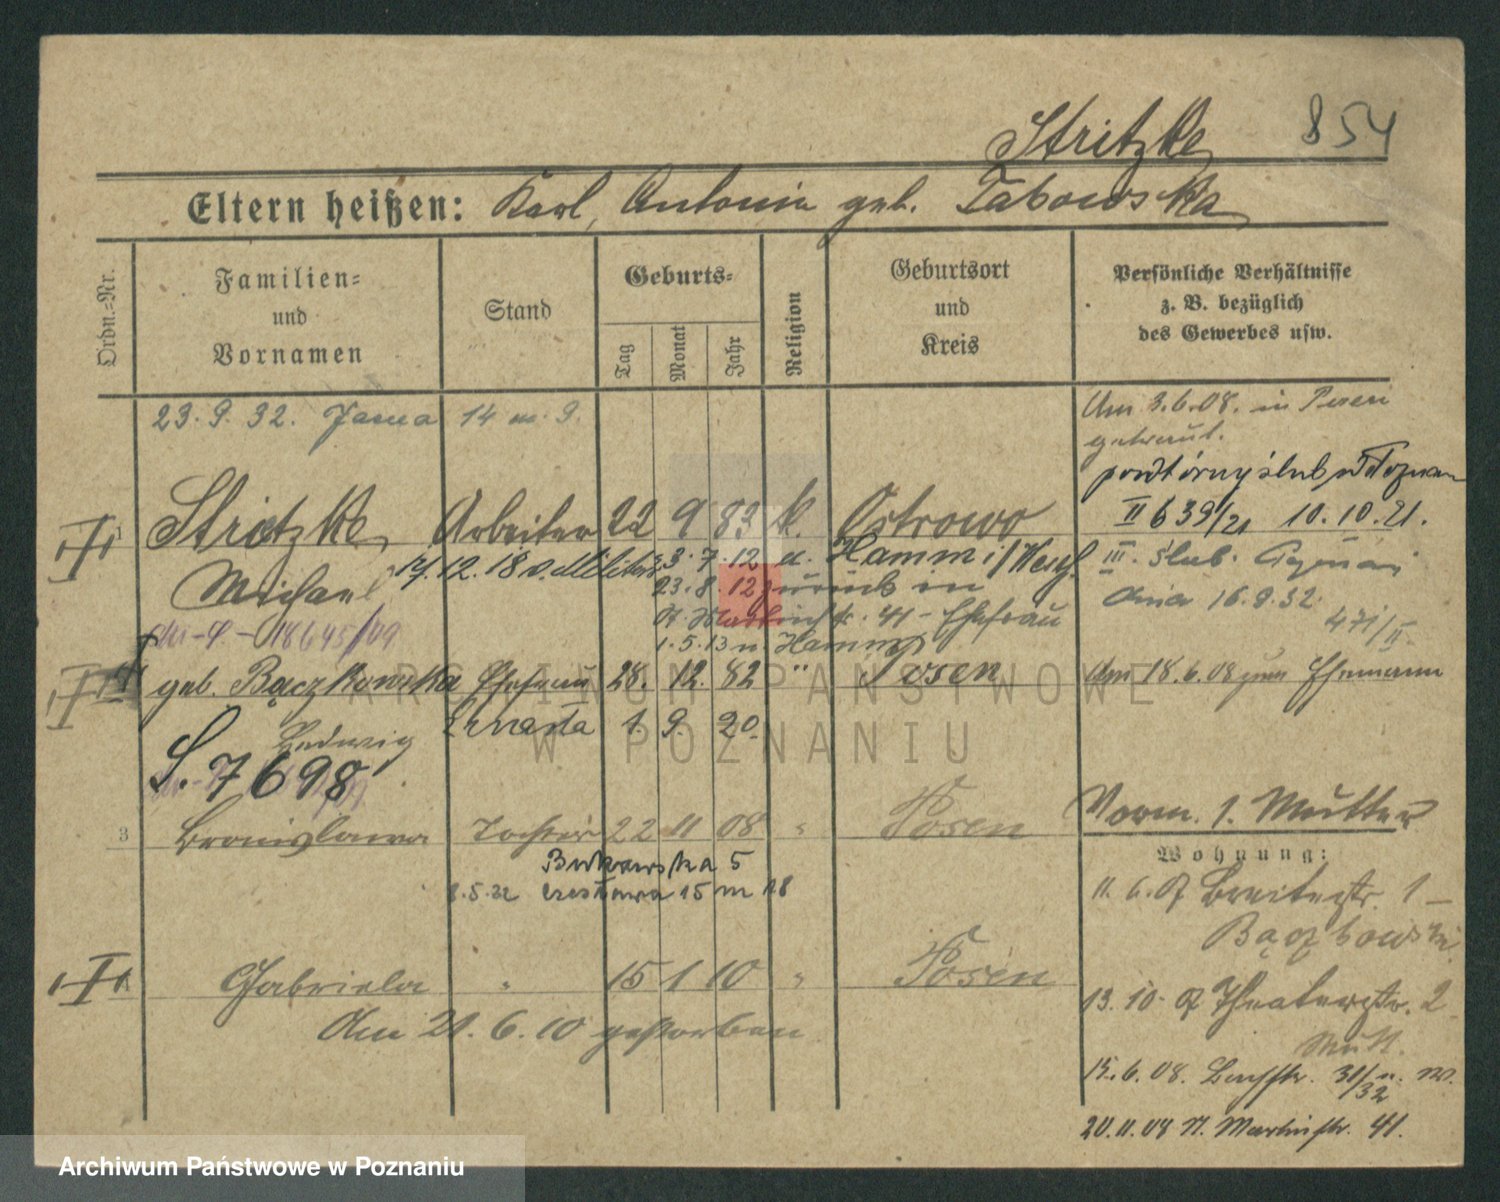 854
Stritzke
Eltern heißen: Karl, Antonia geb. Tabowska
Ordn.-Nr.
Familien-
und
Vornamen
Stand
Geburts-
Tag
Monat
Jahr
Religion
Geburtsort
und
Kreis
Persönliche Verhältnisse
z. B. bezüglich
des Gewerbes usw.
23. 9. 32. Jasna 14 m. 9.
Am 3.6.08. in Posen
getraut.
powtórny ślub w Poznan
II 639/21 10.10.21.
Stritzke Arbeiter 22 9 83 k. Ostrowo
17.12.18 v. Militär 3.7.12 n. Hamm i/Westf.
III. ślub
Michael 23.8.12 zurück in
dnia 16.9.32.
St. Martinstr. 41 - Ehefrau
471/II
18645/09
1.5.13 n. Hamm
geb. Bączkowska Ehefrau 28. 12. 82 " Posen
am 18.6.08 zum Ehemann
1. 9. 20.
Hedwig
S. 7698
Vorm. 1. Mutter
3 Bronislawa Tochter 22 11 08 " Posen
Wohnung:
Bukowska 5
8.5.22 Czesława 15 m 18
11.6.07 Breitestr. 1 –
Bączkowski
Gabriela " 15 1 10 " Posen
13.10.07 Theaterstr. 2
Am 21. 6. 10 gestorben
Mutt.
15.6.08. 31/32
20.11.08 St. Martinstr. 41.
ARCHIWUM PAŃSTWOWE
W POZNANIU
Archiwum Państwowe w Poznaniu